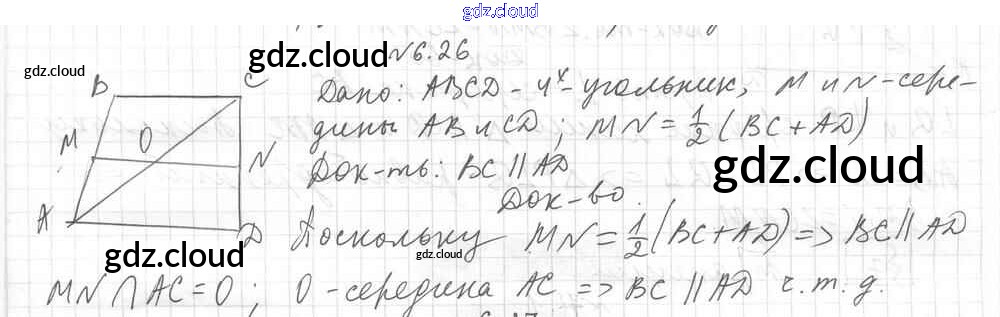 gdz.cloud
gdz.cloud
№6.26
gdz.cloud
B
C
Дано: ABCD - 4х-угольник, M и N - сере-
дины AB и CD; MN = 1/2 (BC + AD)
M
O
N
Док-ть: BC || AD
gdz.cloud
Док-во.
A
D
Поскольку MN = 1/2 (BC + AD) => BC || AD
gdz.cloud
gdz.cloud
MN ∩ AC = O; O - середина AC => BC || AD ч.т.д.